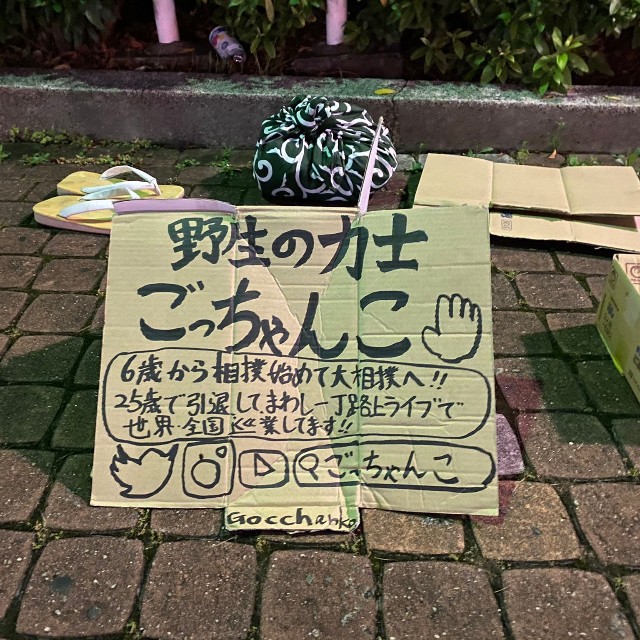 野生の力士
ごっちゃんこ
6歳から相撲始めて大相撲へ!!
25歳で引退してまわし一丁路上ライブで
世界・全国巡業してます!!
ごっちゃんこ
Gocchanko